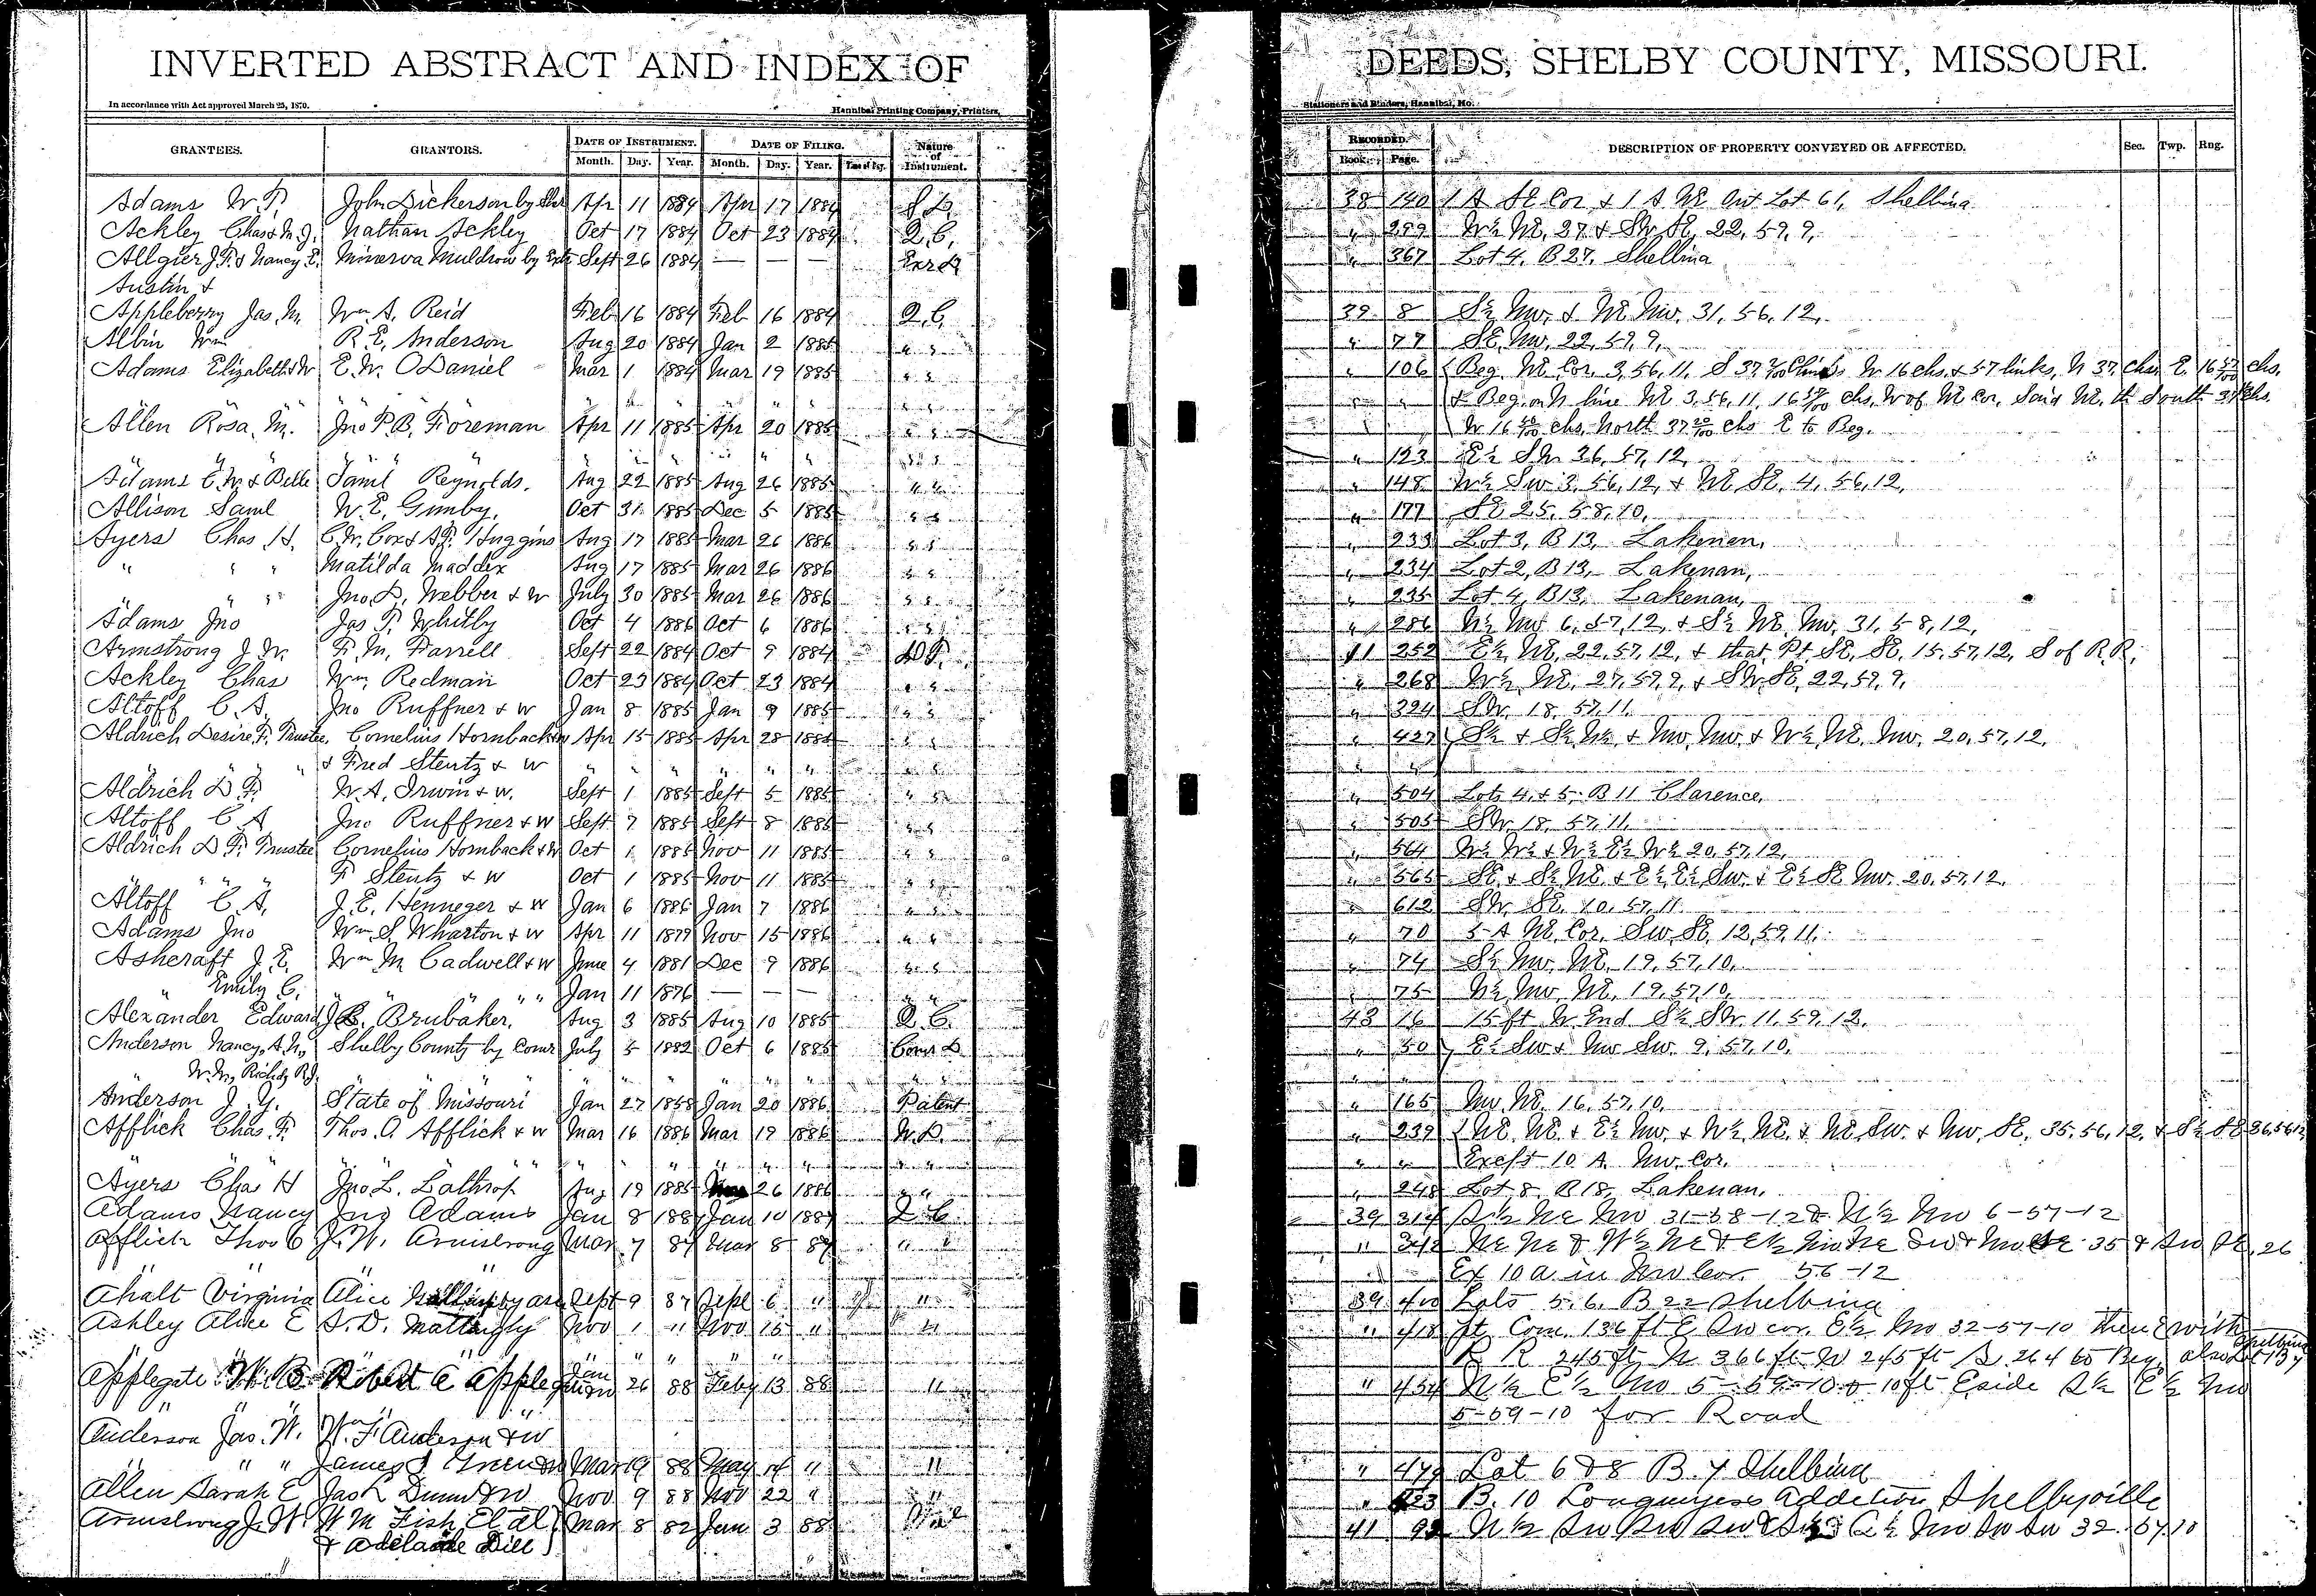 INVERTED ABSTRACT AND INDEX OF DEEDS, SHELBY COUNTY, MISSOURI.
In accordance with Act approved March 25, 1870. Hannibal Printing Company, Printers, Stationers and Binders, Hannibal, Mo.
GRANTEES. GRANTORS. DATE OF INSTRUMENT. DATE OF FILING. Nature of Instrument. RECORDED. DESCRIPTION OF PROPERTY CONVEYED OR AFFECTED. Sec. Twp. Rng.
Month. Day. Year. Month. Day. Year. Book. Page.
Adams W. T. John Dickerson by Apr 11 1884 Apr 17 1884 S D. 38 140 1 A SE Cor. & 1 A NE Out Lot 61, Shelbina
Ackley Chas & M. J. Nathan Ackley Oct 17 1884 Oct 23 1884 Q. C. " 289 W½ NE, 27 & SW SE, 22, 59, 9,
Allgier J. F. & Nancy E. Minerva Muldrow by Extr Sept 26 1884 — — — Exr D " 367 Lot 4, B 27, Shelbina
Austin &
Appleberry Jas. M. Wm A. Reid Feb 16 1884 Feb 16 1884 Q. C. 39 8 S½ NW. & NE NW. 31, 56, 12,
Albin Wm R. E. Anderson Aug 20 1884 Jan 2 1885 " " " 77 SE, NW, 22, 59, 9,
Adams Elizabeth & W E. W. ODaniel Mar 1 1884 Mar 19 1885 " " " 106 Beg. NE Cor. 3, 56, 11, S 37 chs W 16 chs. & 57 links, N 37. chs. E. 16 57/100 chs.
" " " " " " " " " " & Beg. on N line NE 3, 56, 11, 16 chs. W of NE Cor. Said NE, th South 37 chs.
Allen Rosa, M. Jno P. B. Foreman Apr 11 1885 Apr 20 1885 " " W 16 chs, North 37 20/100 chs E to Beg.
" " " " " " " " " 123 E½ SW 36, 57, 12,
Adams E. W. & Belle Saml Reynolds. Aug 22 1885 Aug 26 1885 " " " 148 W½ SW 3, 56, 12, & NE SE, 4, 56, 12,
Allison Saml W. E. Gunby, Oct 31 1885 Dec 5 1885 " " " 177 SE 25, 58, 10,
Ayers Chas. H. C. W. Cox & A. F. Huggins Aug 17 1885 Mar 26 1886 " " " 233 Lot 3, B 13, Lakenan,
" " " Matilda Maddex Aug 17 1885 Mar 26 1886 " " " 234 Lot 2, B 13, Lakenan,
" " " Jno. D. Webber & W July 30 1885 Mar 26 1886 " " " 235 Lot 4, B 13, Lakenan,
Adams Jno Jas T. Whitby Oct 4 1886 Oct 6 1886 " " " 286 N½ NW 6, 57, 12, & S½ NE, NW, 31, 58, 12,
Armstrong J. W. F. M. Farrell Sept 22 1884 Oct 9 1884 W D. 41 252 E½ NE, 22, 57, 12, & that Pt. SE, SE, 15, 57, 12, S of R. R.
Ackley Chas Wm. Redman Oct 23 1884 Oct 23 1884 " " " 268 W½ NE, 27, 59, 9, & SW SE, 22, 59, 9,
Altoff C. A. Jno Ruffner & W Jan 8 1885 Jan 9 1885 " " " 324 SW, 18, 57, 11,
Aldrich Desire F. Trustee, Cornelius Hornback Apr 15 1885 Apr 28 1885 " " " 427 S½ & S½ N½ & NW, NW, & W½ NE, NW, 20, 57, 12,
" " " & Fred Stentz & W " " " " " " " " " "
Aldrich D. F. W. A. Irwin & w. Sept 1 1885 Sept 5 1885 " " " 504 Lots 4 & 5 B 11 Clarence,
Altoff C A Jno Ruffner & W Sept 7 1885 Sept 8 1885 " " " 505 SW, 18, 57, 11,
Aldrich D F. Trustee Cornelius Hornback & W Oct 1 1885 Nov 11 1885 " " " 564 W½ W½ & W½ E½ W½ 20, 57, 12,
" " " F Stentz & W Oct 1 1885 Nov 11 1885 " " " 565 SE & S½ NE & E½ E½ SW. & E½ SE NW. 20, 57, 12,
Altoff C. A. J. E. Henneger & W Jan 6 1886 Jan 7 1886 " " " 612 SW SE, 10, 57, 11.
Adams Jno Wm. S. Wharton & W Apr 11 1879 Nov 15 1886 " " " 70 5 A NE Cor. SW SE 12, 59, 11.
Ashcraft J. E. Wm M. Cadwell & W June 4 1881 Dec 9 1886 " " " 74 S½ NW. NE, 19, 57, 10,
" Emily C. " " " " Jan 11 1876 — — — " " " 75 N½ NW NE, 19, 57, 10,
Alexander Edward J. C. Brubaker. Aug 3 1885 Aug 10 1885 Q. C. 43 16 15 ft W End S½ SW. 11, 59, 12.
Anderson Nancy, A. N., Shelby County by Comr July 5 1882 Oct 6 1885 Comr D " 50 E½ SW & NW SW. 9, 57, 10.
W. W., Rich & R. J. " " " " " " " " " "
Anderson J. Y. State of Missouri Jan 27 1858 Jan 20 1886 Patent " 165 NW NE. 16, 57, 10,
Afflick Chas. F. Thos. C Afflick & w Mar 16 1886 Mar 19 1886 W. D. " 239 NE NE. & E½ NW. & W½ NE. & NE SW. & NW, SE, 35, 56, 12, & S½ SE 26, 56, 12,
" " " " " " " " " " Except 10 A. NW. Cor.
Ayers Chas H Jno L. Lathrop Aug 19 1885 26 1886 " " " 248 Lot 8, B 18, Lakenan,
Adams Nancy Jno Adams Jan 8 1887 Jan 10 1887 Q C 39 314 S½ NE NW 31-58-12 & N½ NW 6-57-12
Afflick Thos C J. W. Armstrong Mar 7 87 Mar 8 87 " " " 342 NE NE & W½ NE & E½ NW NE SW & NW SE 35 & SW SE, 26
Ex 10 a. in NW Cor. 56-12
Ahalt Virginia Alice Sept 9 87 Sept 6 " " 39 410 Lots 5. 6. B 22 Shelbina
Ashley Alice E S. D. Mattingly Nov 1 " Nov 15 " " " 418 ft Com. 136 ft E SW cor. E½ NW 32-57-10 Then E with
" " " " " " R R 245 ft N 366 ft W 245 ft S. 264 to Beg, also Shelbina
Applegate W. B Robert C Applegate Jan 26 88 Feby 13 88 " " 454 N½ E½ NW 5-59-10 & 10 ft E side S½ E½ NW
5-59-10 for Road
Anderson Jas. W. Wm F Anderson & W
" " " James J Green & W Mar 19 88 May 14 " " " 479 Lot 6 & 8 B. 7 Shelbina
Allen Sarah E Jas R Dunn & W Nov 9 88 Nov 22 " " " B. 10 Longmires Addition Shelbyville
Armstrong J. W. W M Fish Et al Mar 8 82 Jan 3 88 41 92 N½ SW SW SW & NW SW SW 32. 57. 10
& Adelaide Dill